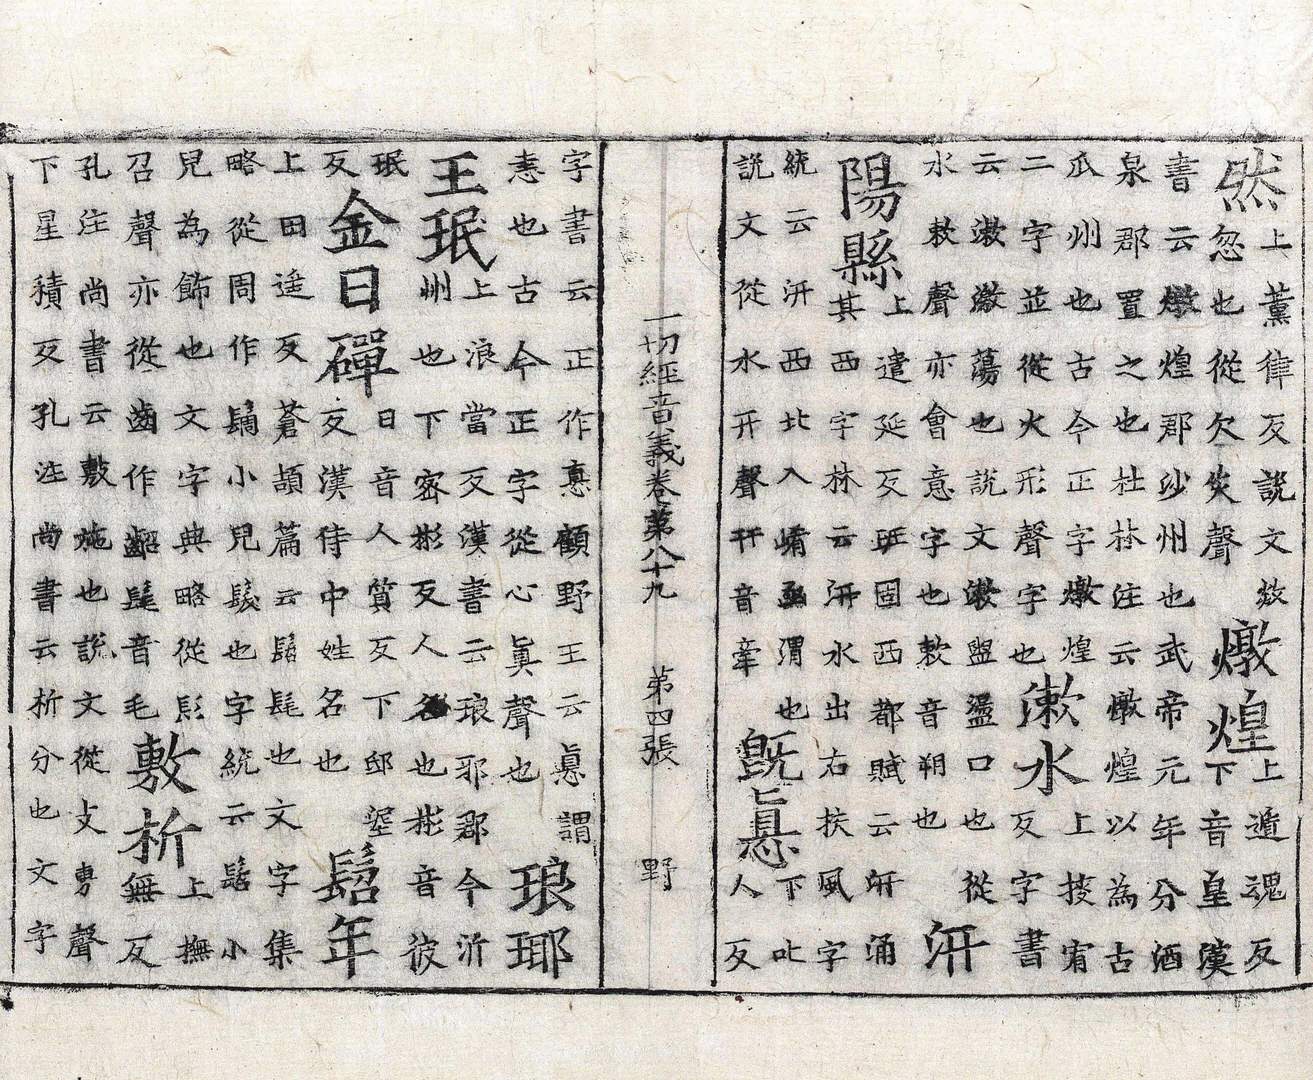 然上薰律反說文欻
忽也從欠炎聲燉煌上遁魂反
下音皇漢
書云燉煌郡沙州也武帝元年分酒
泉郡置之也杜林注云燉煌以為古
瓜州也古今正字燉煌
二字並從火形聲字也漱水上宥
反字書
云漱潄蕩也說文漱盥盪口也從
水欶聲亦會意字也欶音朔也汧
陽縣上遣延反班固西都賦云汧涌
其西字林云汧水出右扶風字
統云汧西北入渭也
說文從水幵聲幵音牽既㥲下叱
人反
一切經音義卷第八十九 第四張 野
字書云正作㥲顧野王云㥲謂
恚也古今正字從心眞聲也琅瑘
王珉上浪當反漢書云琅邪郡今沂
州也下密彬反人名也彬音彼
珉
反金日磾日音人質反下邸堊
反漢侍中姓名也髫年
上田遥反蒼頡篇云髫髦也文字集
略從周作䯾小兒髮也字統云髫小
兒為飾也文字典略從髟
召聲亦從齒作齠髦音毛敷析上撫
無反
孔注尚書云敷施也說文從攴尃聲
下星積反孔注尚書云析分也文字